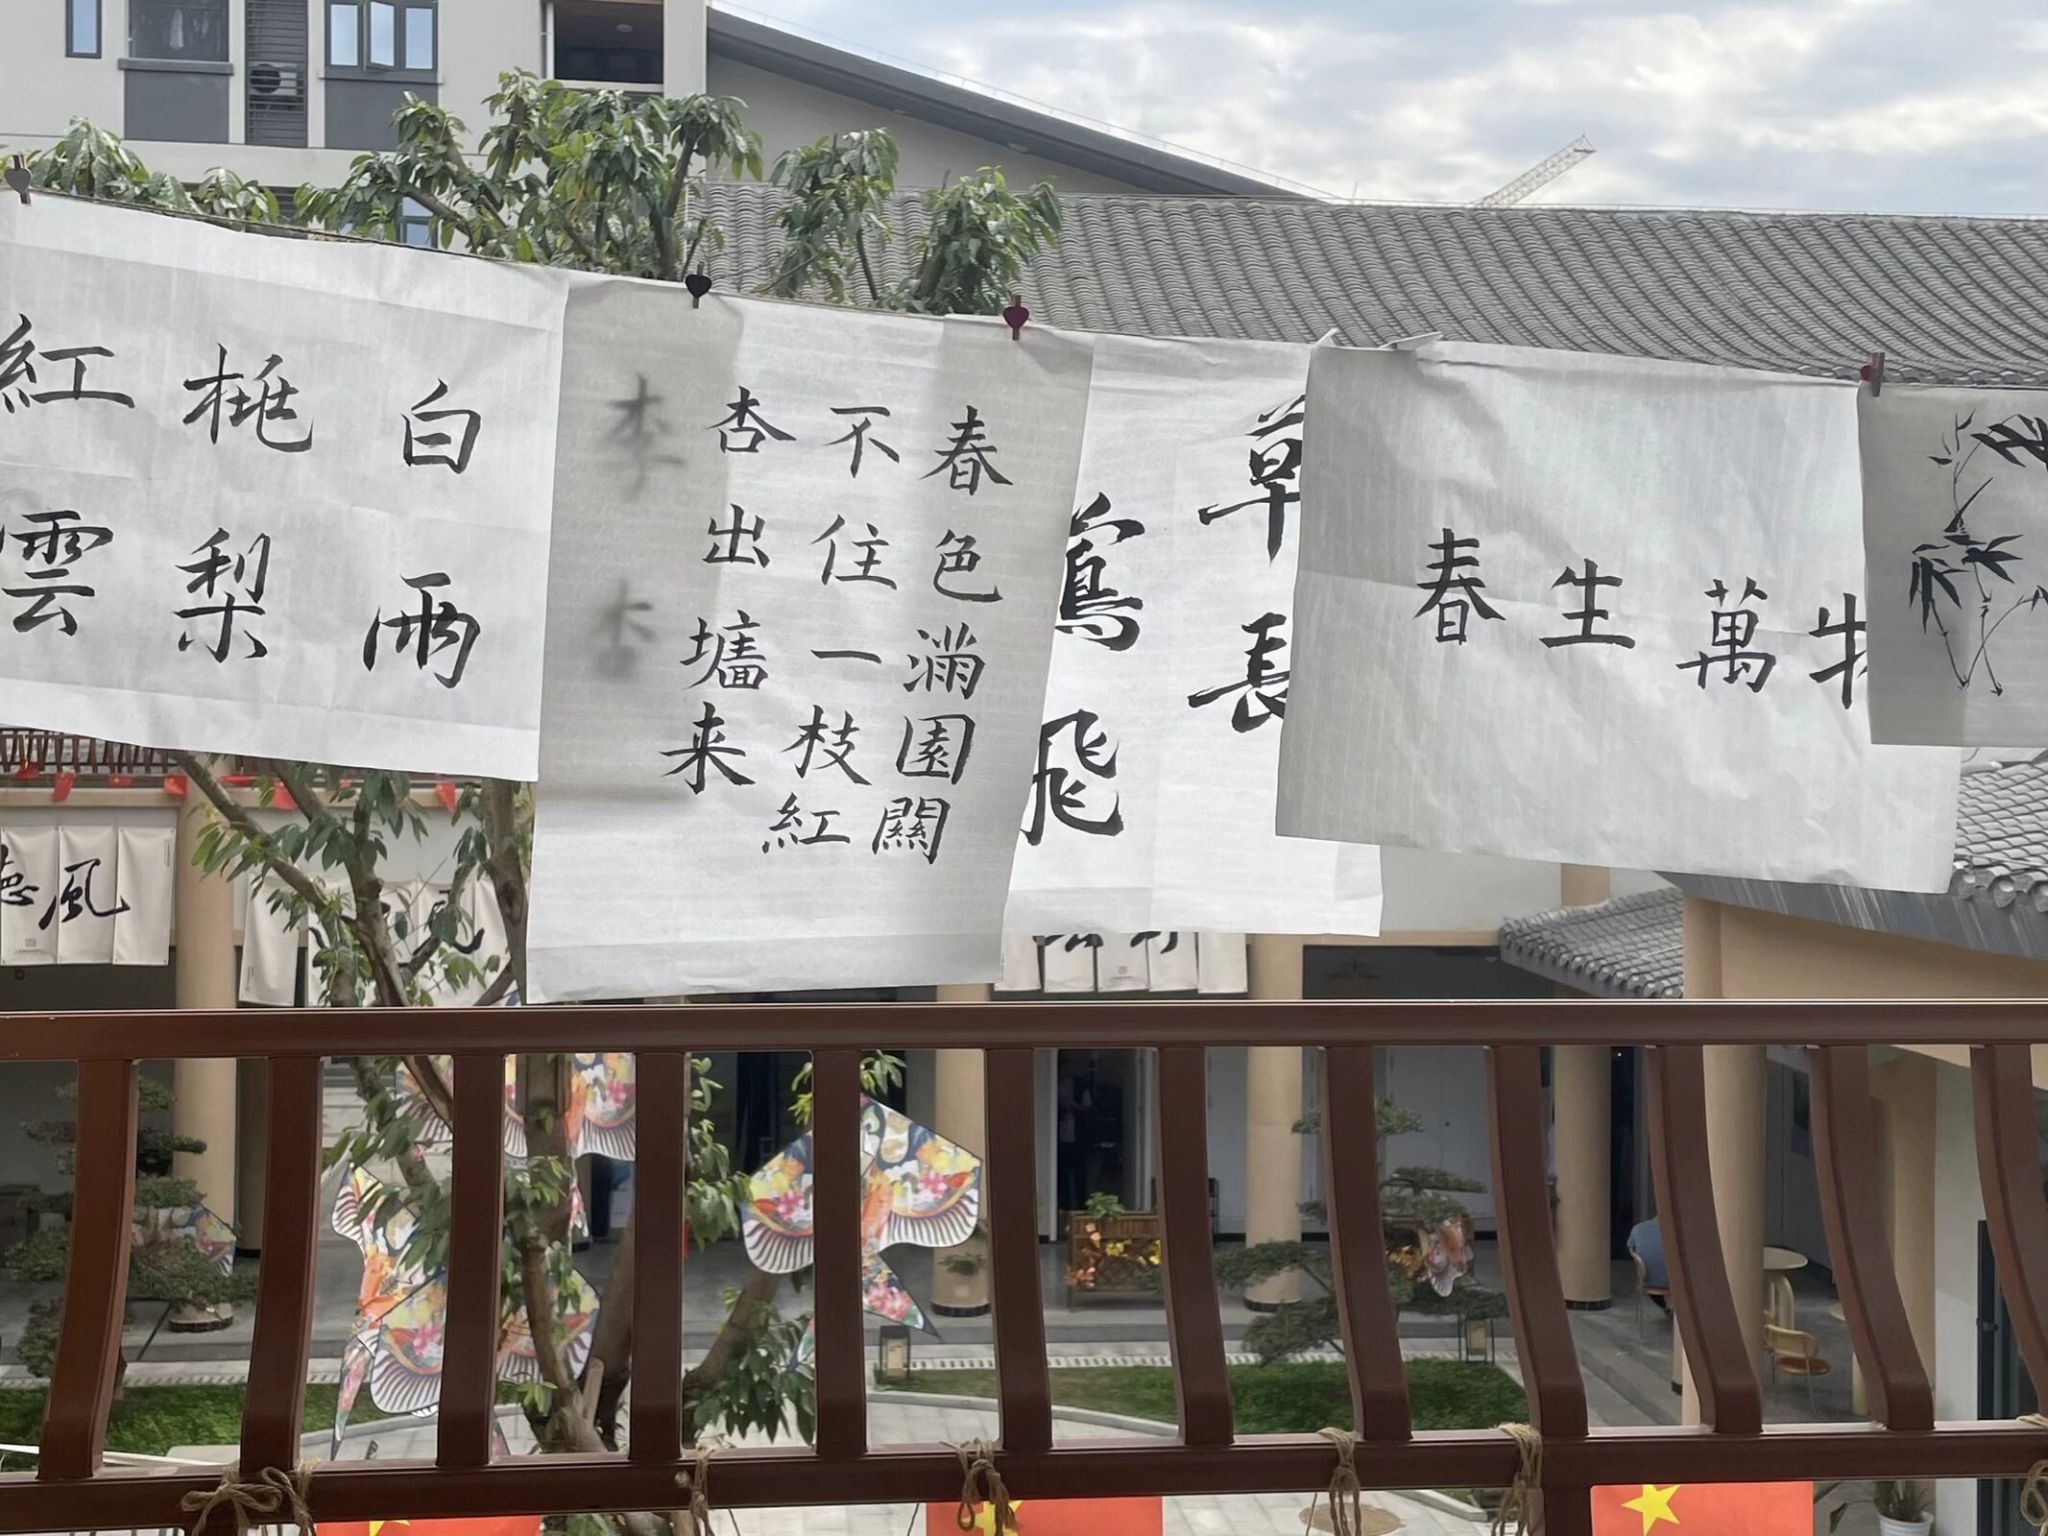 白雨
梨
紅雲
春色滿園關
不住一枝紅
杏出墻来
李
草長
鶯飛
春生萬物
風